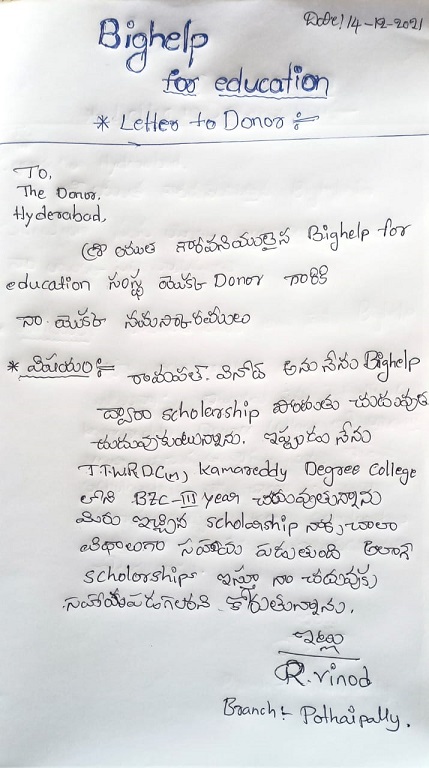 Date! 14-12-2021
Bighelp
for education
* Letter to Donor :-
To,
The Donor,
Hyderabad,
శ్రీ యుత గౌరవనియులైన Bighelp for
education సంస్థ యొక్క Donor గారికి
నా యొక్క నమస్కారములు
* విషయం :- రామపల్. వినోద్ అను నేను Bighelp
ద్వారా scholership పొందుతు చదువుకు
చదువుకుంటున్నాను. ఇప్పుడు నేను
T.T.W.R.D.C(M), Kamareddy Degree College
లోని BZC-III year చదువుతున్నాను
మీరు ఇచ్చిన scholarship నాకు చాలా
విధాలుగా సహాయ పడుతుంది అలాగే
scholorships ఇస్తూ నా చదువుకు
సహాయపడగలరని కోరుతున్నాను.
ఇట్లు
R.vinod
Branch :- Pothaipally.